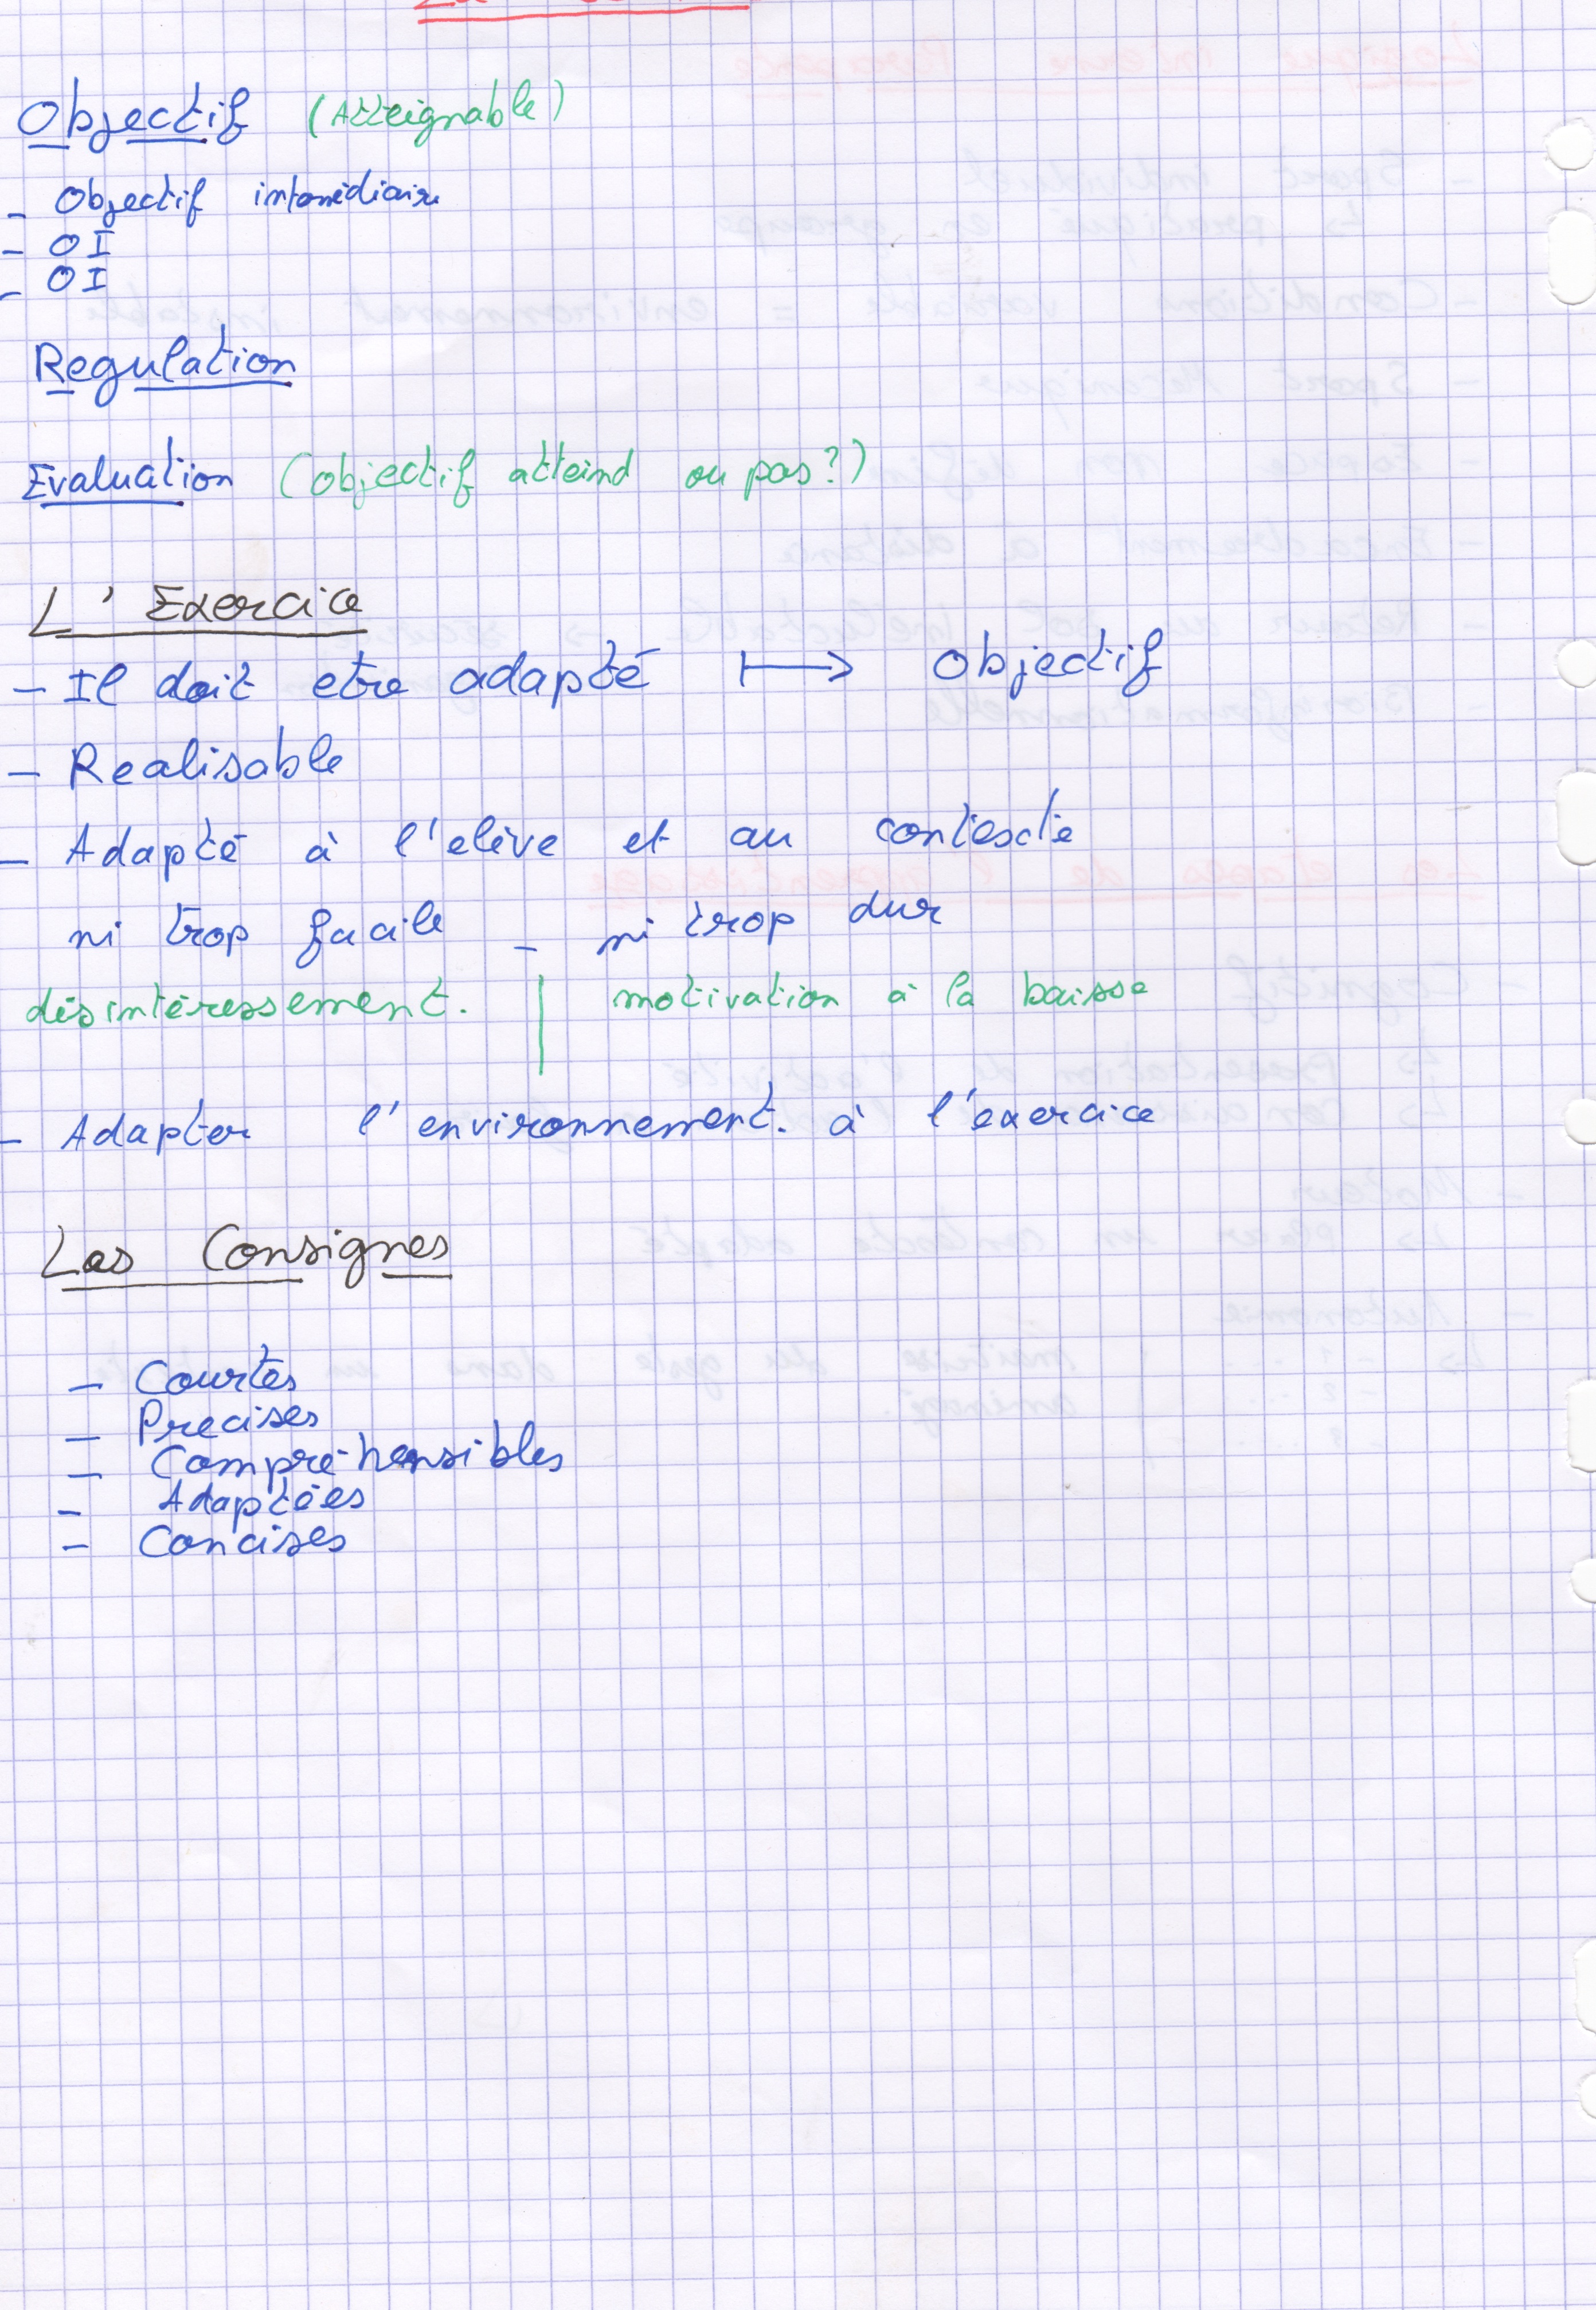 Objectif (Atteignable)
- Objectif intermédiaire
- OI
- OI
Regulation
Evaluation (objectif atteind ou pas?)
L'Exercice
- Il doit etre adapté ↦ Objectif
- Realisable
- Adapté à l'elève et au contexte
ni trop facile - ni trop dur
désintéressement. | motivation à la baisse
- Adapter l'environnement. à l'exercice
Les Consignes
- Courtes
- Precises
- Compré-hensibles
- Adaptées
- Concises